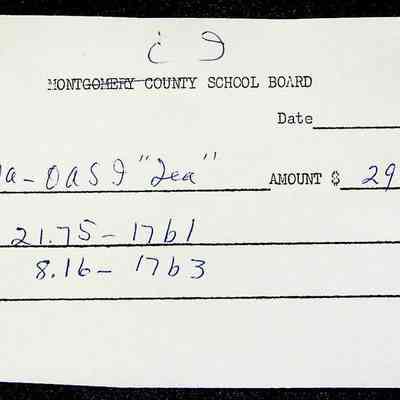 MONTGOMERY COUNTY SCHOOL BOARD
Date
a-OASI "Lea" AMOUNT $ 29
21.75 - 1761
8.16 - 1763